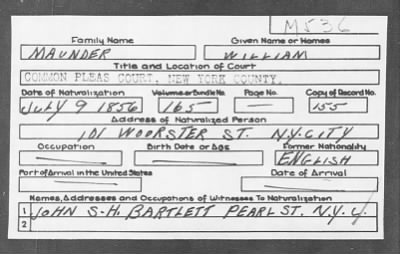 M536
Family Name Given Name or Names
MAUNDER WILLIAM
Title and Location of Court
COMMON PLEAS COURT, NEW YORK COUNTY.
Date of Naturalization Volume or Bundle No. Page No. Copy of Record No.
JULY 9 1856 165 — 155
Address of Naturalized Person
101 WOORSTER ST. N.Y.CITY
Occupation Birth Date or Age Former Nationality
ENGLISH
Port of Arrival in the United States Date of Arrival
Names, Addresses and Occupations of Witnesses To Naturalization
1 JOHN S.H. BARTLETT PEARL ST. N.Y.C.
2